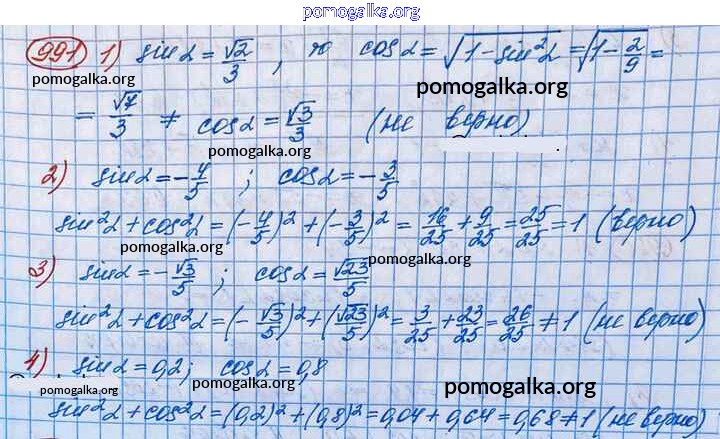 pomogalka.org
991 1) sin α = √2/3 , то cos α = √1 - sin²α = √1 - 2/9 =
pomogalka.org pomogalka.org
= √7/3 ≠ cos α = √3/3 (не верно)
pomogalka.org
2) sin α = - 4/5 ; cos α = - 3/5
sin²α + cos²α = (- 4/5)² + (- 3/5)² = 16/25 + 9/25 = 25/25 = 1 (верно)
pomogalka.org
3) sin α = - √3/5 ; cos α = √23/5
pomogalka.org
sin²α + cos²α = (- √3/5)² + (√23/5)² = 3/25 + 23/25 = 26/25 ≠ 1 (не верно)
pomogalka.org
4) sin α = 0,2; cos α = 0,8
pomogalka.org pomogalka.org
sin²α + cos²α = (0,2)² + (0,8)² = 0,04 + 0,64 = 0,68 ≠ 1 (не верно)